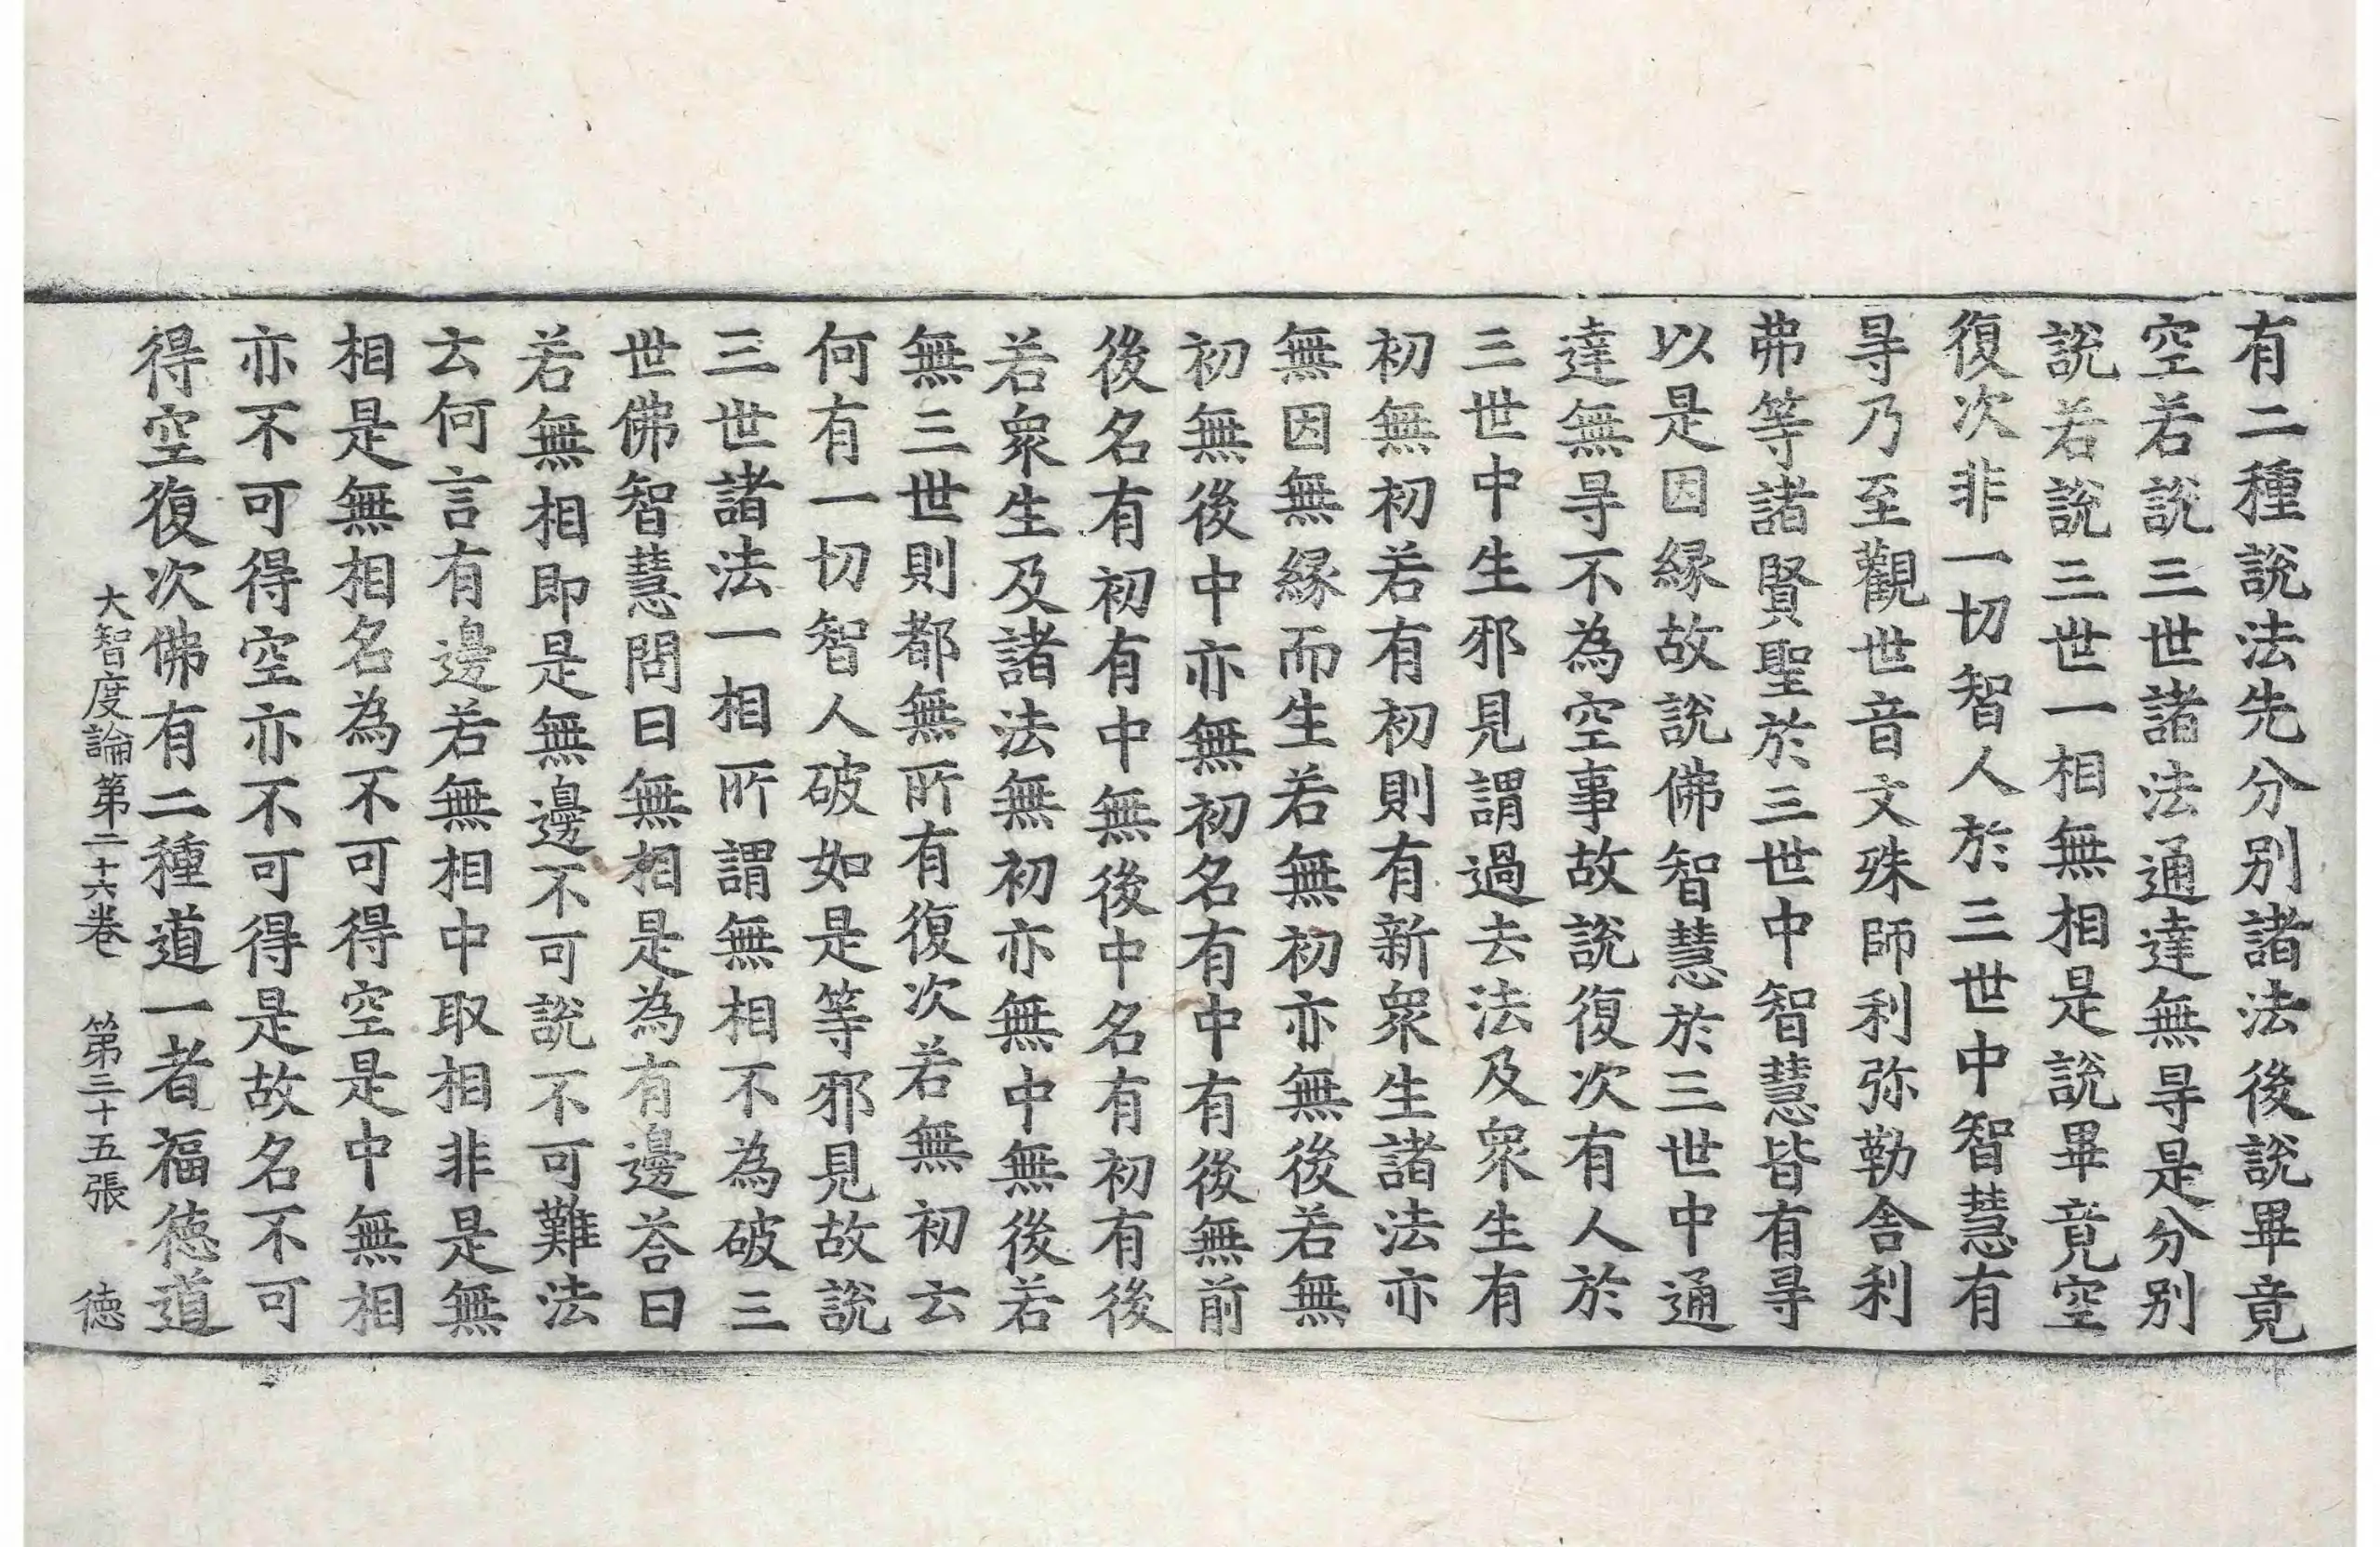 有二種說法先分別諸法後說畢竟
空若說三世諸法通達無㝵是分別
說若說三世一相無相是說畢竟空
復次非一切智人於三世中智慧有
㝵乃至觀世音文殊師利弥勒舎利
弗等諸賢聖於三世中智慧皆有㝵
以是因縁故說佛智慧於三世中通
達無㝵不為空事故說復次有人於
三世中生邪見謂過去法及衆生有
初無初若有初則有新衆生諸法亦
無因無縁而生若無初亦無後若無
初無後中亦無初名有中有後無前
後名有初有中無後中名有初有後
若衆生及諸法無初亦無中無後若
無三世則都無所有復次若無初云
何有一切智人破如是等邪見故說
三世諸法一相所謂無相不為破三
世佛智慧問曰無相是為有邊荅曰
若無相即是無邊不可說不可難法
云何言有邊若無相中取相非是無
相是無相名為不可得空是中無相
亦不可得空亦不可得是故名不可
得空復次佛有二種道一者福徳道
大智度論第二十六卷 第三十五張 徳